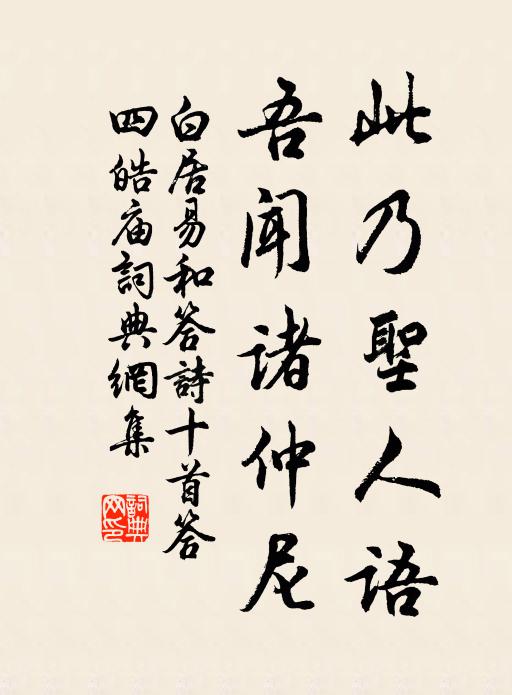 此乃聖人语
吾闻诸仲尼
白居易和答詩十首答
四皓庙詞典網集
詞典
网印